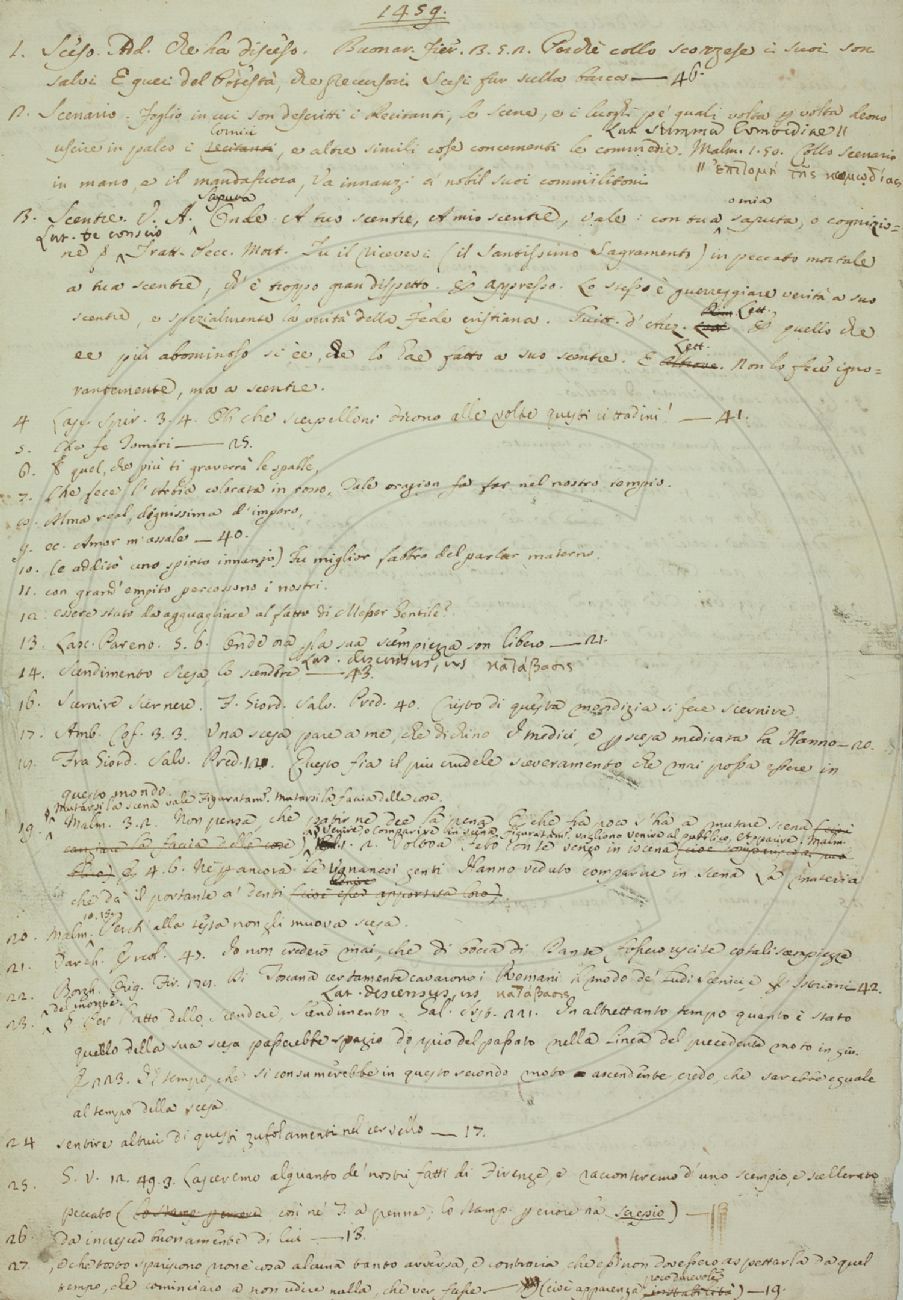 1459.
1. Sceso. Add. Che ha disceso. Buonar. Fier. B. 5. 2. Perchè collo scorzese i suoi son
salvi E quei del Potestà, che precursori Scesi fur sulla barca — 46.
2. Scenario. Foglio in cui son descritti i Recitanti, le scene, e i luoghi pe' quali volta p volta deono
comici Lat. summa Comoediae
uscire in palco i recitanti, e altre simili cose concernenti le commedie. Malm. 1. 50. Collo scenario
ἐπιτομὴ τῆς κωμῳδίας
in mano, e il mandafuora, Va innanzi a' nobil suoi commilitoni
saputa o mia
B. Scentre. V. A. Onde: A tuo scentre, A mio scentre, vale: con tua saputa, o cognizio=
Lat. te conscio
ne Fratt. Pecc. Mort. Tu il ricevevi (il Santissimo Sagramento) in peccato mortale
a tua scentre, ch'è troppo gran dispetto. E appresso. Lo stesso è guerreggiare verità a suo
scentre, e spezialmente la verità della Fede cristiana. Guitt. d'Arez. Lett. E quello che
Lett.
ee più abominoso si ee, che lo hae fatto a suo scentre. E altrove. Non lo fece igno=
rantemente, ma a scentre.
4 Lasc. Spir. 3. 4. Oh che scerpelloni dicono alle volte questi cittadini! — 41.
5. Che fe Tomiri — 25.
6. E quel, che più ti graverrà le spalle,
7. Che fece l'Arbia colorata in rosso, Tale orazion fa far nel nostro tempio.
8. Alma real, dignissima d'impero,
9. ec. Amor m'assale — 40.
10. (e additò uno spirto innanzi) Fu miglior fabbro del parlar materno.
11. con grand'empito percossono i nostri.
12. essere stato da agguagliare al fatto di Messer Gentile?
13. Lasc. Paren. 5. 6. Onde ora p la sua scempiezza son libero — 21.
Lat. descensus, us κατάβασις
14. Scendimento Scesa lo scendere — 43.
16. Scernire Scernere. F. Giord. Salv. Pred. 40. Cristo di questa mondizia si fece scernire
17. Amb. Cof. 3. 3. Una scesa pare a me, che dichino I medici, e p scesa medicata La Hanno — 20.
Fra Giord. Salv. Pred. Questo fia il più crudele sceveramento che mai possa essere in
questo mondo.
Mutarsi la scena vale Figuratam. Mutarsi la faccia delle cose.
19. Malm. 3. 2. Non pensa, che patir ne dee la pena E che fra poco s'ha a mutare scena
Venire, o Comparire in scena, figuratam. vagliono venire al pubblico, Apparire. Malm.
1. 2. Vo' Febo con te vengo in iscena
E 4. 6. Nè pancora le genti Hanno veduto comparire in scena La materia
che dà il portante a' denti
20. Malm. 10. Perch' alla testa non gli muova scesa.
21. Varch. Ercol. 47. Io non crederò mai, che di bocca di Dante fossero uscite cotali scempiezze
22. Borgh. Orig. Fir. Di Toscana certamente cavarono i Romani il modo de' Ludi Scenici e p Istrioni 42.
del monte. Lat. descensus, us κατάβασις
23. § Per l'atto dello scendere, Scendimento. Gal. Sist. 221. In altrettanto tempo quanto è stato
quello della sua scesa passerebbe spazio doppio del passato nella linea del precedente moto in giù.
E 223. Il tempo, che si consumerebbe in questo secondo moto ascendente credo, che sarebbe eguale
al tempo della scesa.
24 sentire altrui di questi zufolamenti nel cervello — 17.
25. G. V. 12. 49. 9. Lasceremo alquanto de' nostri fatti di Firenze, e racconteremo d'uno scempio, e scellerato
peccato (così ne' T. a penna; lo stamp. p errore ha scepio)
26. Da increscé buonamente di lui — 18.
27. e che tosto spariscono non è cosa alcuna tanto avversa, e contraria che essi non dovessero aspettarla da quel
poco durevole
tempo, che cominciaro a non vedere nulla, che ver fusse (cioè apparenza instabilità) — 19.